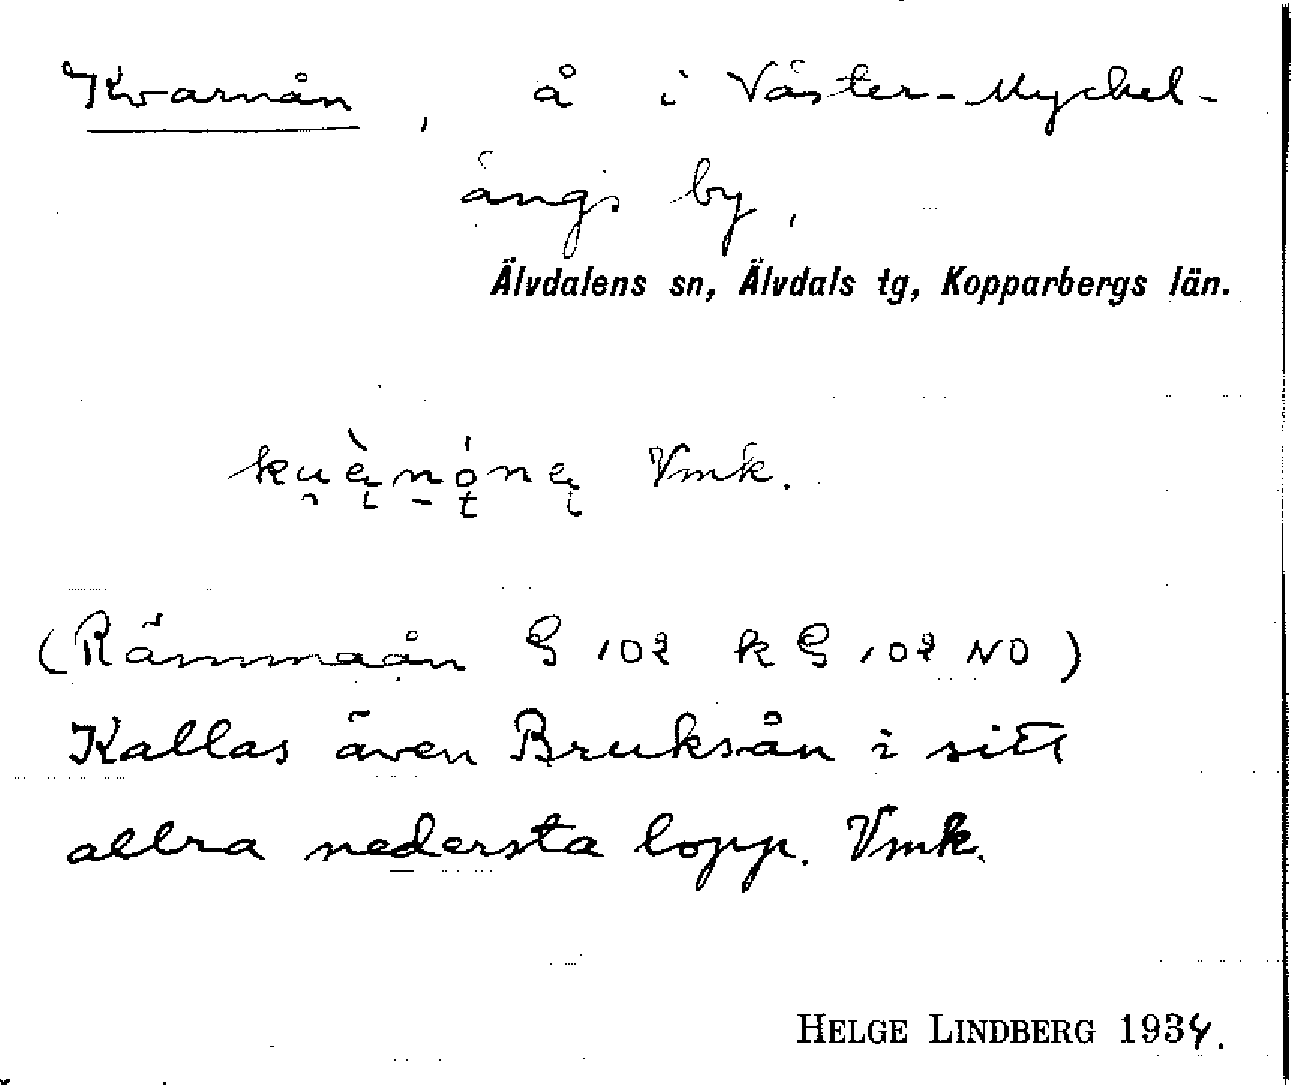 Kvarnån, å i Väster-Myckel-
ängs by,
Älvdalens sn, Älvdals tg, Kopparbergs län.
Vmk.
(Rämmaån G 102 k G 102 NO)
Kallas även Bruksån i sitt
allra nedersta lopp. Vmk.
HELGE LINDBERG 1934.